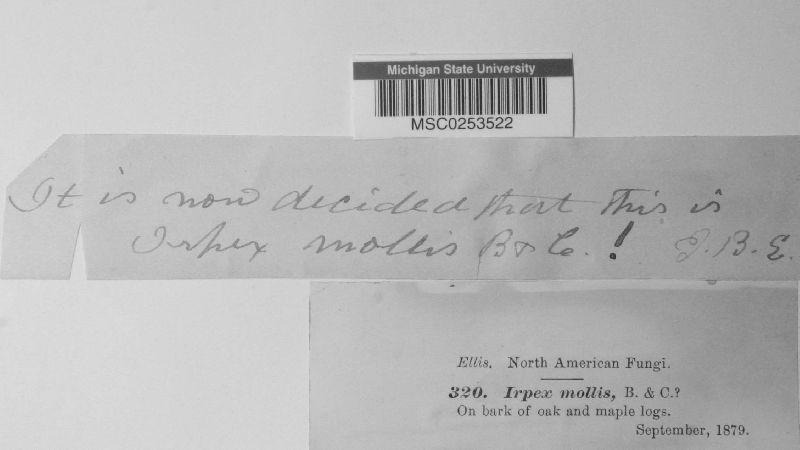 Michigan State University
MSC0253522
It is now decided that this is
Irpex mollis B & C. ! J. B. E.
Ellis. North American Fungi.
320. Irpex mollis, B. & C.?
On bark of oak and maple logs.
September, 1879.